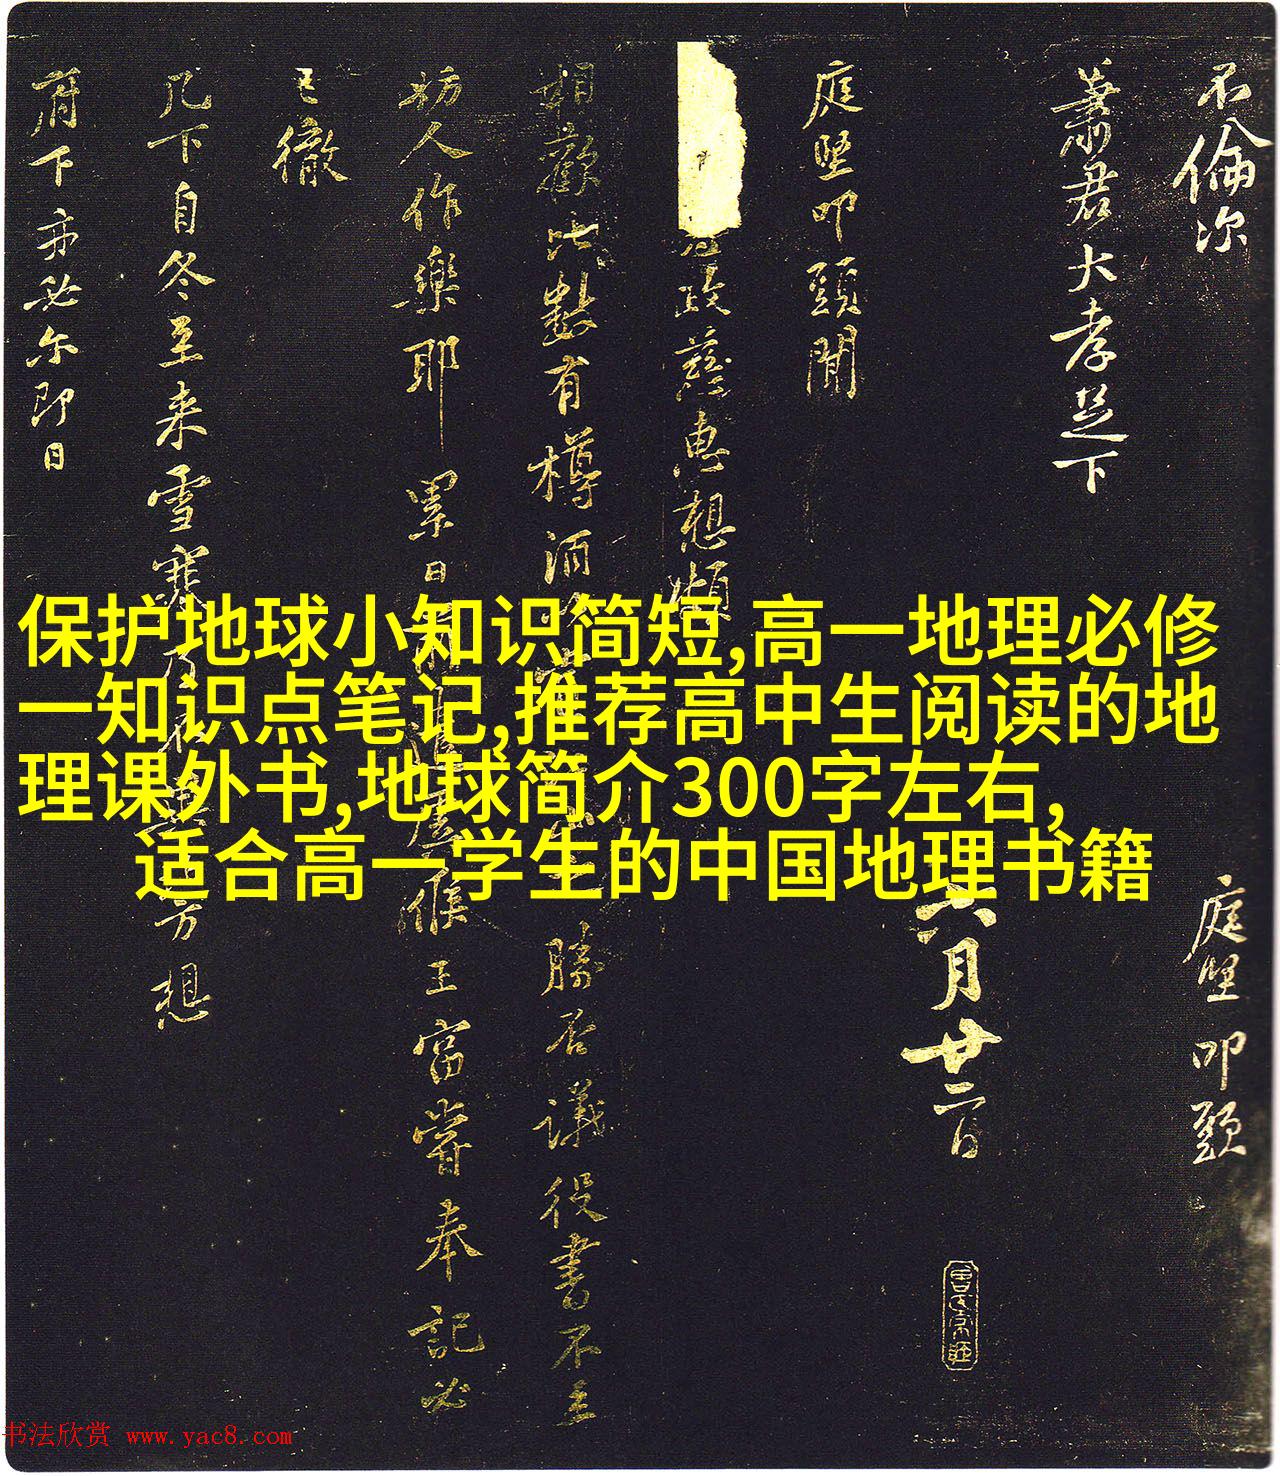 不倫次
庭堅叩頭
蕭君大孝足下
六月廿二日
庭堅叩頭聞
政慈惠想煩
相歡比數有樽酒
勝否議役書不主
妨人作樂耶累日
王富嘗奉記必
已徹
几下自冬至来雪寒
方想
府下亦必尔即日
保护地球小知识简短,高一地理必修
一知识点笔记,推荐高中生阅读的地
理课外书,地球简介300字左右,
适合高一学生的中国地理书籍
书法欣赏 www.yac8.com